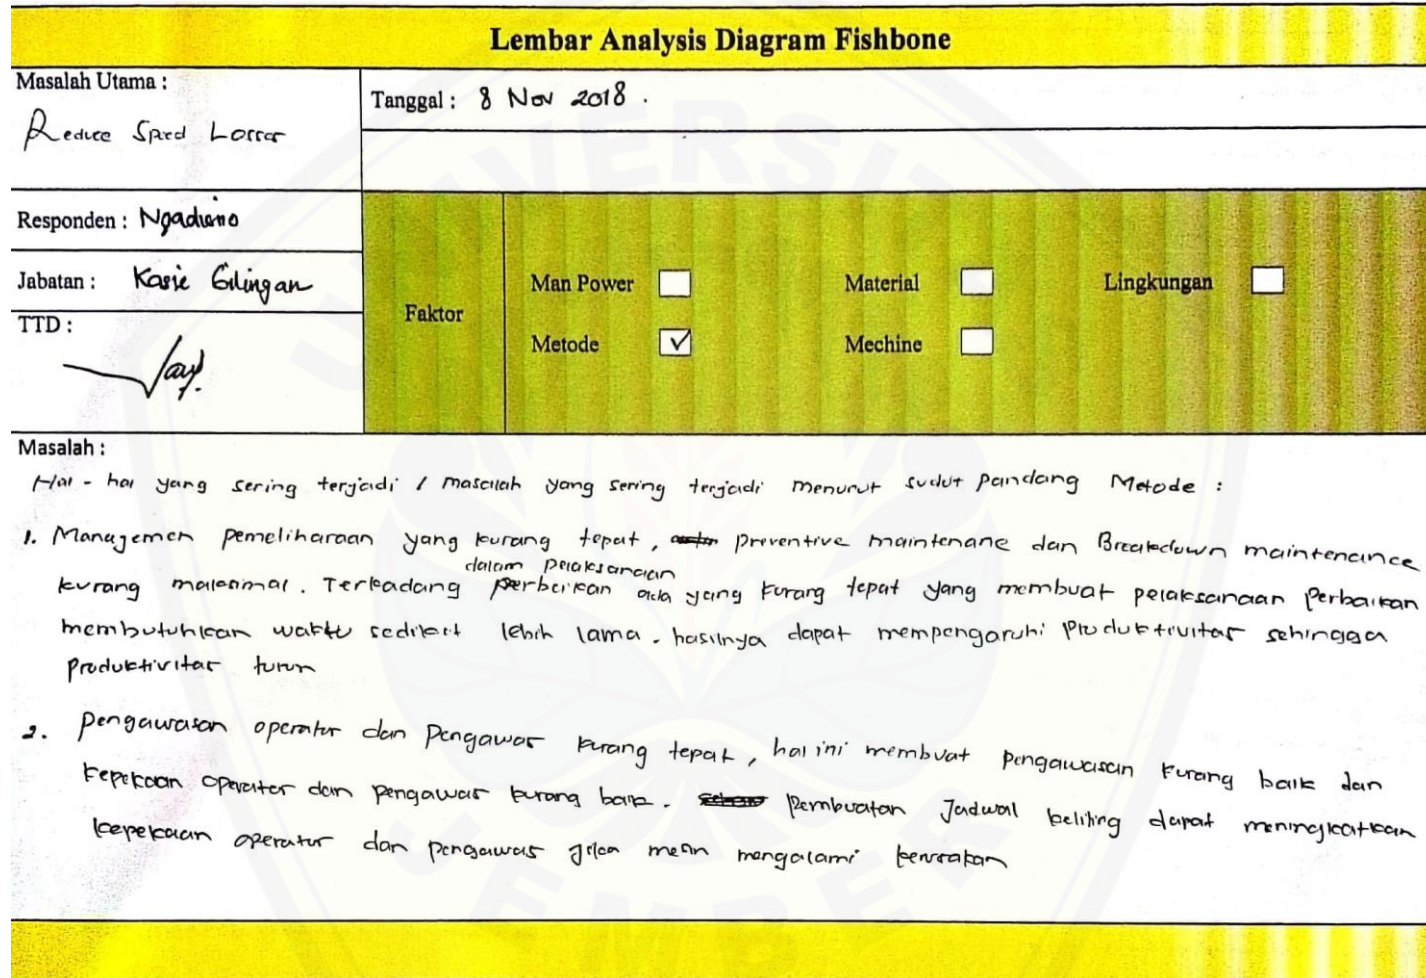 Lembar Analysis Diagram Fishbone
Masalah Utama :
Reduce Speed Losses
Tanggal : 8 Nov 2018 .
Responden : Ngadieno
Jabatan : Kasie Gilingan
TTD :
Faktor
Man Power
Material
Lingkungan
Metode ✓
Mechine
Masalah :
Hal - hal yang sering terjadi / masalah yang sering terjadi menurut sudut pandang Metode :
1. Managemen pemeliharaan yang kurang tepat, preventive maintenane dan Breakdown maintenance
dalam pelaksanaan
kurang maksimal. Terkadang perbaikan ada yang kurang tepat yang membuat pelaksanaan perbaikan
membutuhkan waktu sedikit lebih lama. hasilnya dapat mempengaruhi produktivitas sehingga
produktivitas turun
2. pengawasan operator dan pengawas kurang tepat, hal ini membuat pengawasan kurang baik dan
kepekaan operator dan pengawas kurang baik. pembuatan Jadwal keliling dapat meningkatkan
kepekaan operator dan pengawas jika mesin mengalami kerusakan
UNIVERSIT
EMBE